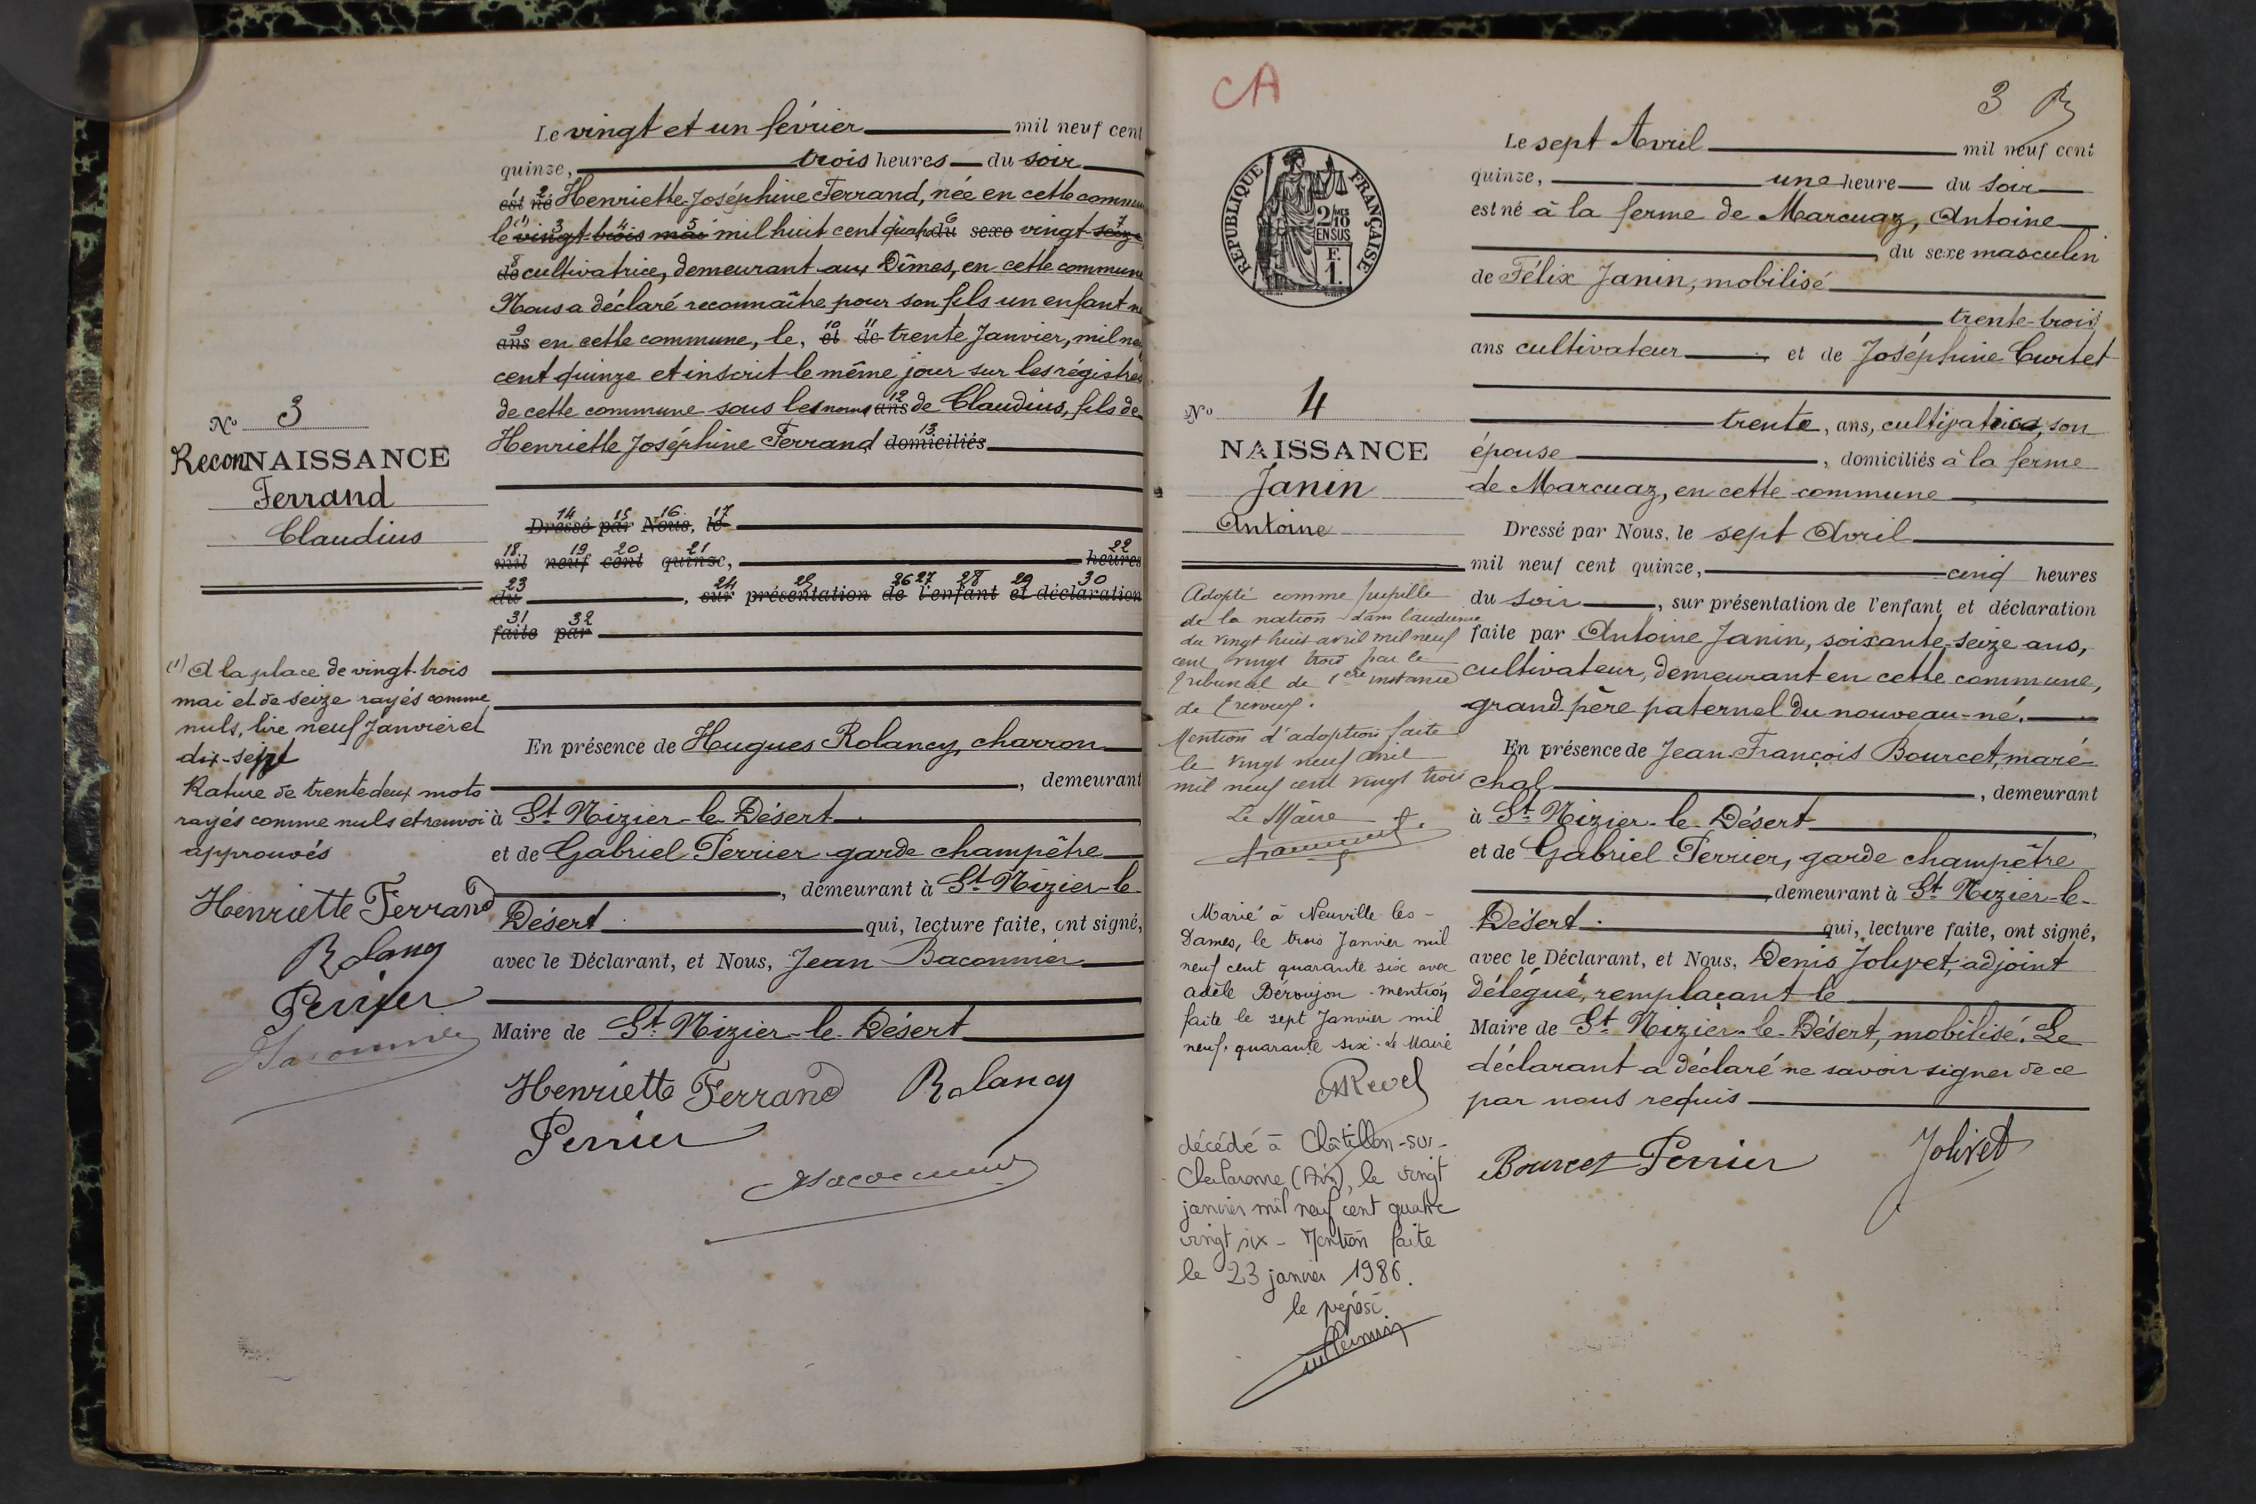 Le vingt et un février mil neuf cent
quinze, trois heures du soir
est né Henriette Joséphine Ferrand, née en cette commune
le (1) vingt-trois mai mil huit cent quatre du sexe vingt seize
de cultivatrice, demeurant aux Dîmes, en cette commune
Nous a déclaré reconnaître pour son fils un enfant né
ans en cette commune, le, et de trente Janvier, mil neuf
cent quinze et inscrit le même jour sur les régistres
de cette commune sous les noms ans de Claudius, fils de
Henriette Joséphine Ferrand domiciliés
N° 3
ReconNAISSANCE
Ferrand
Claudius
Dressé par Nous, le
mil neuf cent quinze, heures
du , sur présentation de l'enfant et déclaration
faite par
(1) A la place de vingt-trois
mai et de seize rayés comme
nuls, lire neuf Janvier et
dix-sept
Rature de trente deux mots
rayés comme nuls et renvoi
approuvés
Henriette Ferrand
Rolancy
Perrier
En présence de Hugues Rolancy, charron
, demeurant
à St. Nizier-le-Désert
et de Gabriel Perrier garde champêtre
, demeurant à St. Nizier-le-
Désert qui, lecture faite, ont signé,
avec le Déclarant, et Nous, Jean Baconnier
Maire de St. Nizier-le-Désert
Henriette Ferrand Rolancy
Perrier
CA
3
RÉPUBLIQUE FRANÇAISE
2/10 EN SUS
F. 1.
N° 4
NAISSANCE
Janin
Antoine
Adopté comme pupille
de la nation dans l'audience
du vingt huit avril mil neuf
cent vingt trois par le
tribunal de 1ère instance
de Trévoux.
Mention d'adoption faite
le vingt neuf avril
mil neuf cent vingt trois
Le Maire
Marié à Neuville-les-
Dames, le trois Janvier mil
neuf cent quarante six avec
adèle Béroujon. mention
faite le sept Janvier mil
neuf. quarante six. Le Maire
décédé à Châtillon-sur-
Chalaronne (Ain), le vingt
janvier mil neuf cent quatre
vingt six - Mention faite
le 23 janvier 1986.
le préposé
Le sept Avril mil neuf cent
quinze, une heure du soir
est né à la ferme de Marcuaz, Antoine
du sexe masculin
de Félix Janin, mobilisé
trente-trois
ans cultivateur et de Joséphine Curtet
trente, ans, cultivatrice, son
épouse , domiciliés à la ferme
de Marcuaz, en cette commune
Dressé par Nous, le sept Avril
mil neuf cent quinze, cinq heures
du soir , sur présentation de l'enfant et déclaration
faite par Antoine Janin, soixante-seize ans,
cultivateur, demeurant en cette commune,
grand-père paternel du nouveau-né.
En présence de Jean-François Bourcet, maré-
chal , demeurant
à St. Nizier-le-Désert
et de Gabriel Perrier, garde champêtre
demeurant à St. Nizier-le-
Désert. qui, lecture faite, ont signé,
avec le Déclarant, et Nous, Denis Jolivet, adjoint
délégué, remplaçant le
Maire de St. Nizier-le-Désert, mobilisé. Le
déclarant a déclaré ne savoir signer de ce
par nous requis
Bourcet Perrier Jolivet